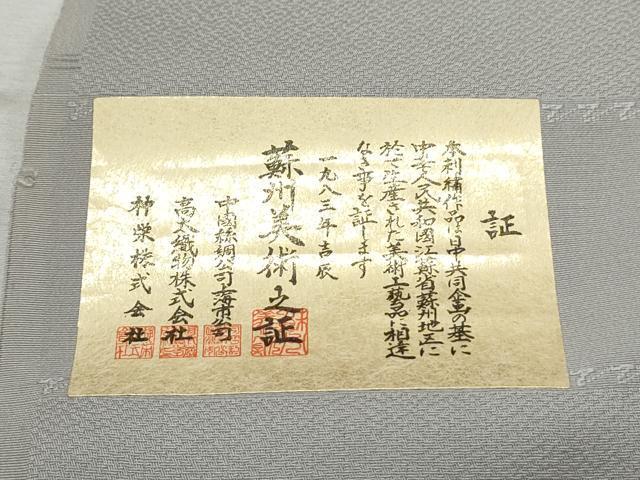 証
本刺繍作品は日中共同企画の基に
中華人民共和國江蘇省蘇州地区に
於て生産された美術工藝品に相違
なき事を証します
一九八三年吉辰
蘇州美術之証
中國絲綢公司上海市分公司
高太織物株式会社
神栄株式会社